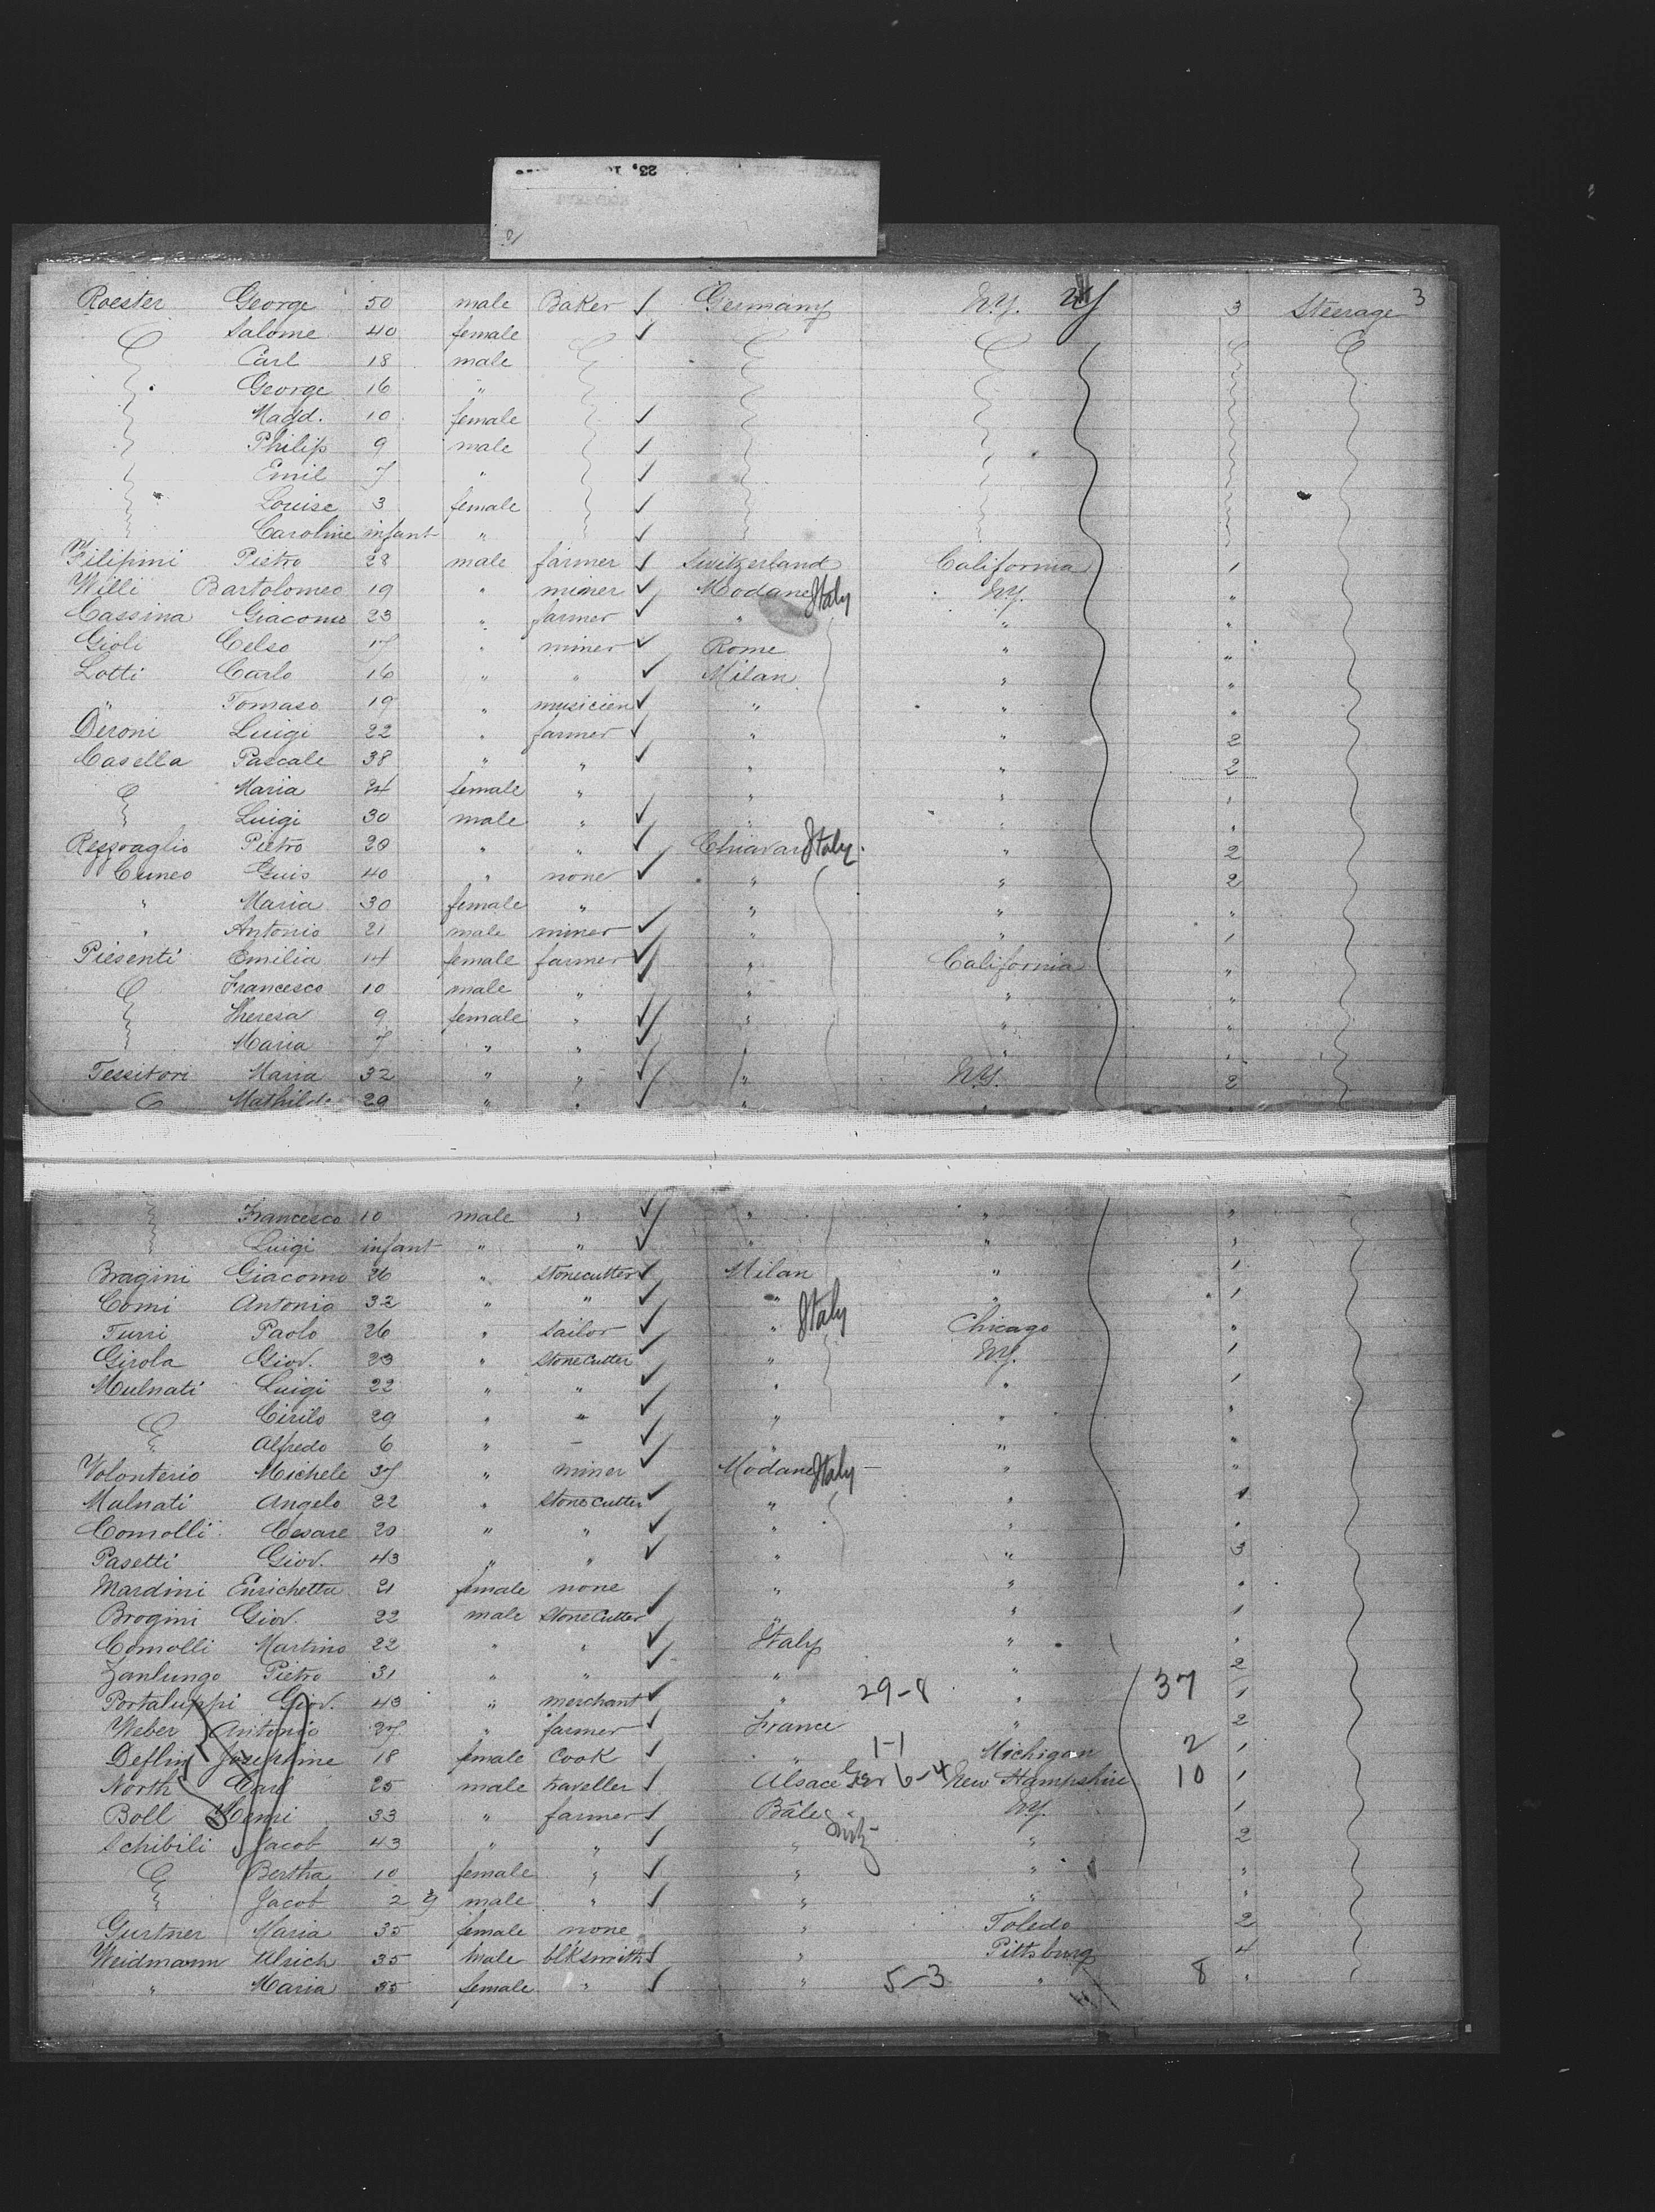 3
Roester George 50 male Baker ✓ Germany N.Y. NY 3 Steerage
Salome 40 female ✓
Carl 18 male
George 16 "
Magd. 10 female ✓
Philip 9 male ✓
Emil 7 " ✓
Louise 3 female ✓
Caroline infant " ✓
Filipini Pietro 28 male farmer ✓ Switzerland California 1
Willi Bartolomeo 19 " miner ✓ Modane Italy N.Y. "
Cassina Giacomo 23 " farmer ✓ " " "
Gioli Celso 17 " miner ✓ Rome " "
Lotti Carlo 16 " " ✓ Milan " "
" Tomaso 19 " musicien ✓ " " "
Deroni Luigi 22 " farmer ✓ " " 2
Casella Pascale 38 " " ✓ " " 2
Maria 24 female " " " "
Luigi 30 male " ✓ " " "
Rezzoaglio Pietro 20 " " ✓ Chiavari Italy " 2
Cuneo Guis 40 " none ✓ " " 2
" Maria 30 female " " " "
" Antonio 21 male miner ✓ " " 1
Piesenti Emilia 14 female farmer ✓ " California "
Francesco 10 male " ✓ " " "
Theresa 9 female " ✓ " " "
Maria 7 " " ✓ " " "
Tessitori Maria 32 " " ✓ " N.Y. 2
Mathilde 29 " " ✓ " " "
Francesco 10 male " ✓ " " "
Luigi infant " " ✓ " " "
Bragini Giacomo 26 " stonecutter ✓ Milan " 1
Comi Antonio 32 " " ✓ " " 1
Turri Paolo 26 " sailor ✓ " Italy Chicago "
Girola Giov. 23 " Stonecutter ✓ " N.Y. 1
Mulnati Luigi 22 " " ✓ " " 1
Cirilo 29 " " ✓ " " "
Alfredo 6 " – ✓ " " "
Volonterio Michele 37 " miner ✓ Modane Italy " "
Malnati Angelo 22 " Stonecutter ✓ " " 1
Comolli Cesare 20 " " ✓ " " "
Pasetti Giov. 43 " " ✓ " " 3
Mardini Enrichetta 21 female none " " "
Brogini Giov. 22 male Stonecutter ✓ " " 1
Comolli Martino 22 " " ✓ Italy " "
Zanlungo Pietro 31 " " ✓ " " 2
Portaluppi Giov. 43 " merchant ✓ " 29-8 " 37 1
Weber Antonio 27 " farmer ✓ France " 2
Deflin Josephine 18 female Cook ✓ " 1-1 Michigan 2 1
North Carl 25 male traveller ✓ Alsace Ger 6-4 New Hampshire 10 1
Boll Henri 33 " farmer ✓ Bâle N.Y. 1
Schibili Jacob 43 " " ✓ " Switz " 2
Bertha 10 female " ✓ " " "
Jacob 2 male " ✓ " " "
Gurtner Maria 35 female none " Toledo 2
Weidmann Ulrich 35 male blksmith ✓ " Pittsburg 4
" Maria 35 female " ✓ " 5-3 " 8 "